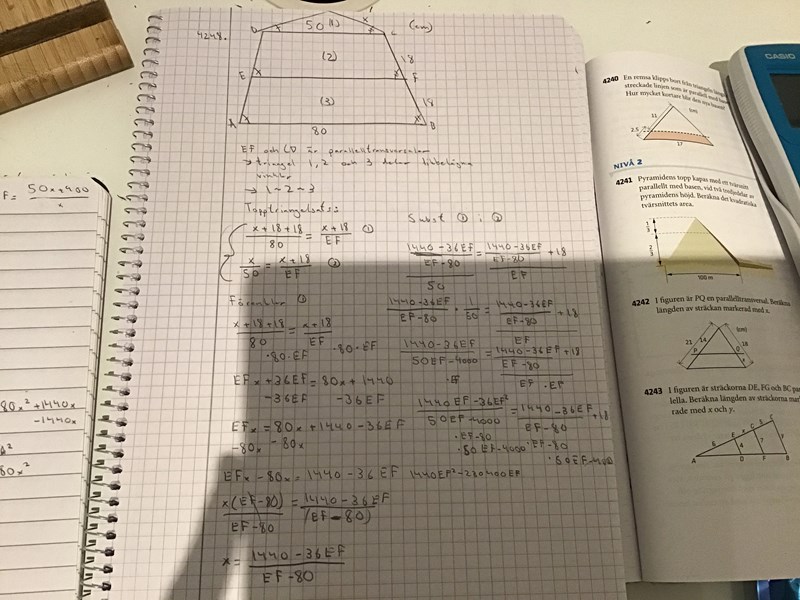 4248.
50 (1)
x
(cm)
D
C
(2)
18
E
F
(3)
18
A
B
80
EF och CD är paralleltransversaler
→ triangel 1, 2 och 3 delar likbelägna
vinklar
→ 1~2~3
Topptriangelsats:
(x+18+18)/80 = (x+18)/EF ①
x/50 = (x+18)/EF ②
Förenklar ①
(x+18+18)/80 = (x+18)/EF
·80·EF ·80·EF
EFx+36EF = 80x+1440
-36EF -36EF
EFx = 80x+1440-36EF
-80x -80x
EFx-80x = 1440-36EF
x(EF-80)/(EF-80) = (1440-36EF)/(EF-80)
x = (1440-36EF)/(EF-80)
Subst ① i ②
((1440-36EF)/(EF-80))/50 = ((1440-36EF)/(EF-80) + 18)/EF
(1440-36EF)/(EF-80) · 1/50 = ((1440-36EF)/(EF-80) + 18)/EF
(1440-36EF)/(50EF-4000) = ((1440-36EF)/(EF-80) + 18)/EF
·EF ·EF
(1440EF-36EF²)/(50EF-4000) = (1440-36EF)/(EF-80) + 18
·EF-80 ·EF-80
F = (50x+400)/x
80x²+1440x
-1440x
80x²
CASIO
4240 En remsa klipps bort från triangeln längs
streckade linjen som är parallell med basen
Hur mycket kortare blir den nya
(cm)
11
2,5
17
NIVÅ 2
4241 Pyramidens topp kapas med ett tvärsnitt
parallellt med basen, vid två tredjedelar av
pyramidens höjd. Beräkna det kvadratiska
tvärsnittets area.
1/3
2/3
100 m
4242 I figuren är PQ en parallelltransversal. Beräkna
längden av sträckan markerad med x.
(cm)
21
14
18
P
Q
x
4243 I figuren är sträckorna DE, FG och BC
lella. Beräkna längden av sträckorna
rade med x och y.
A
D
F
B
E
G
C
6
4
7
x
y